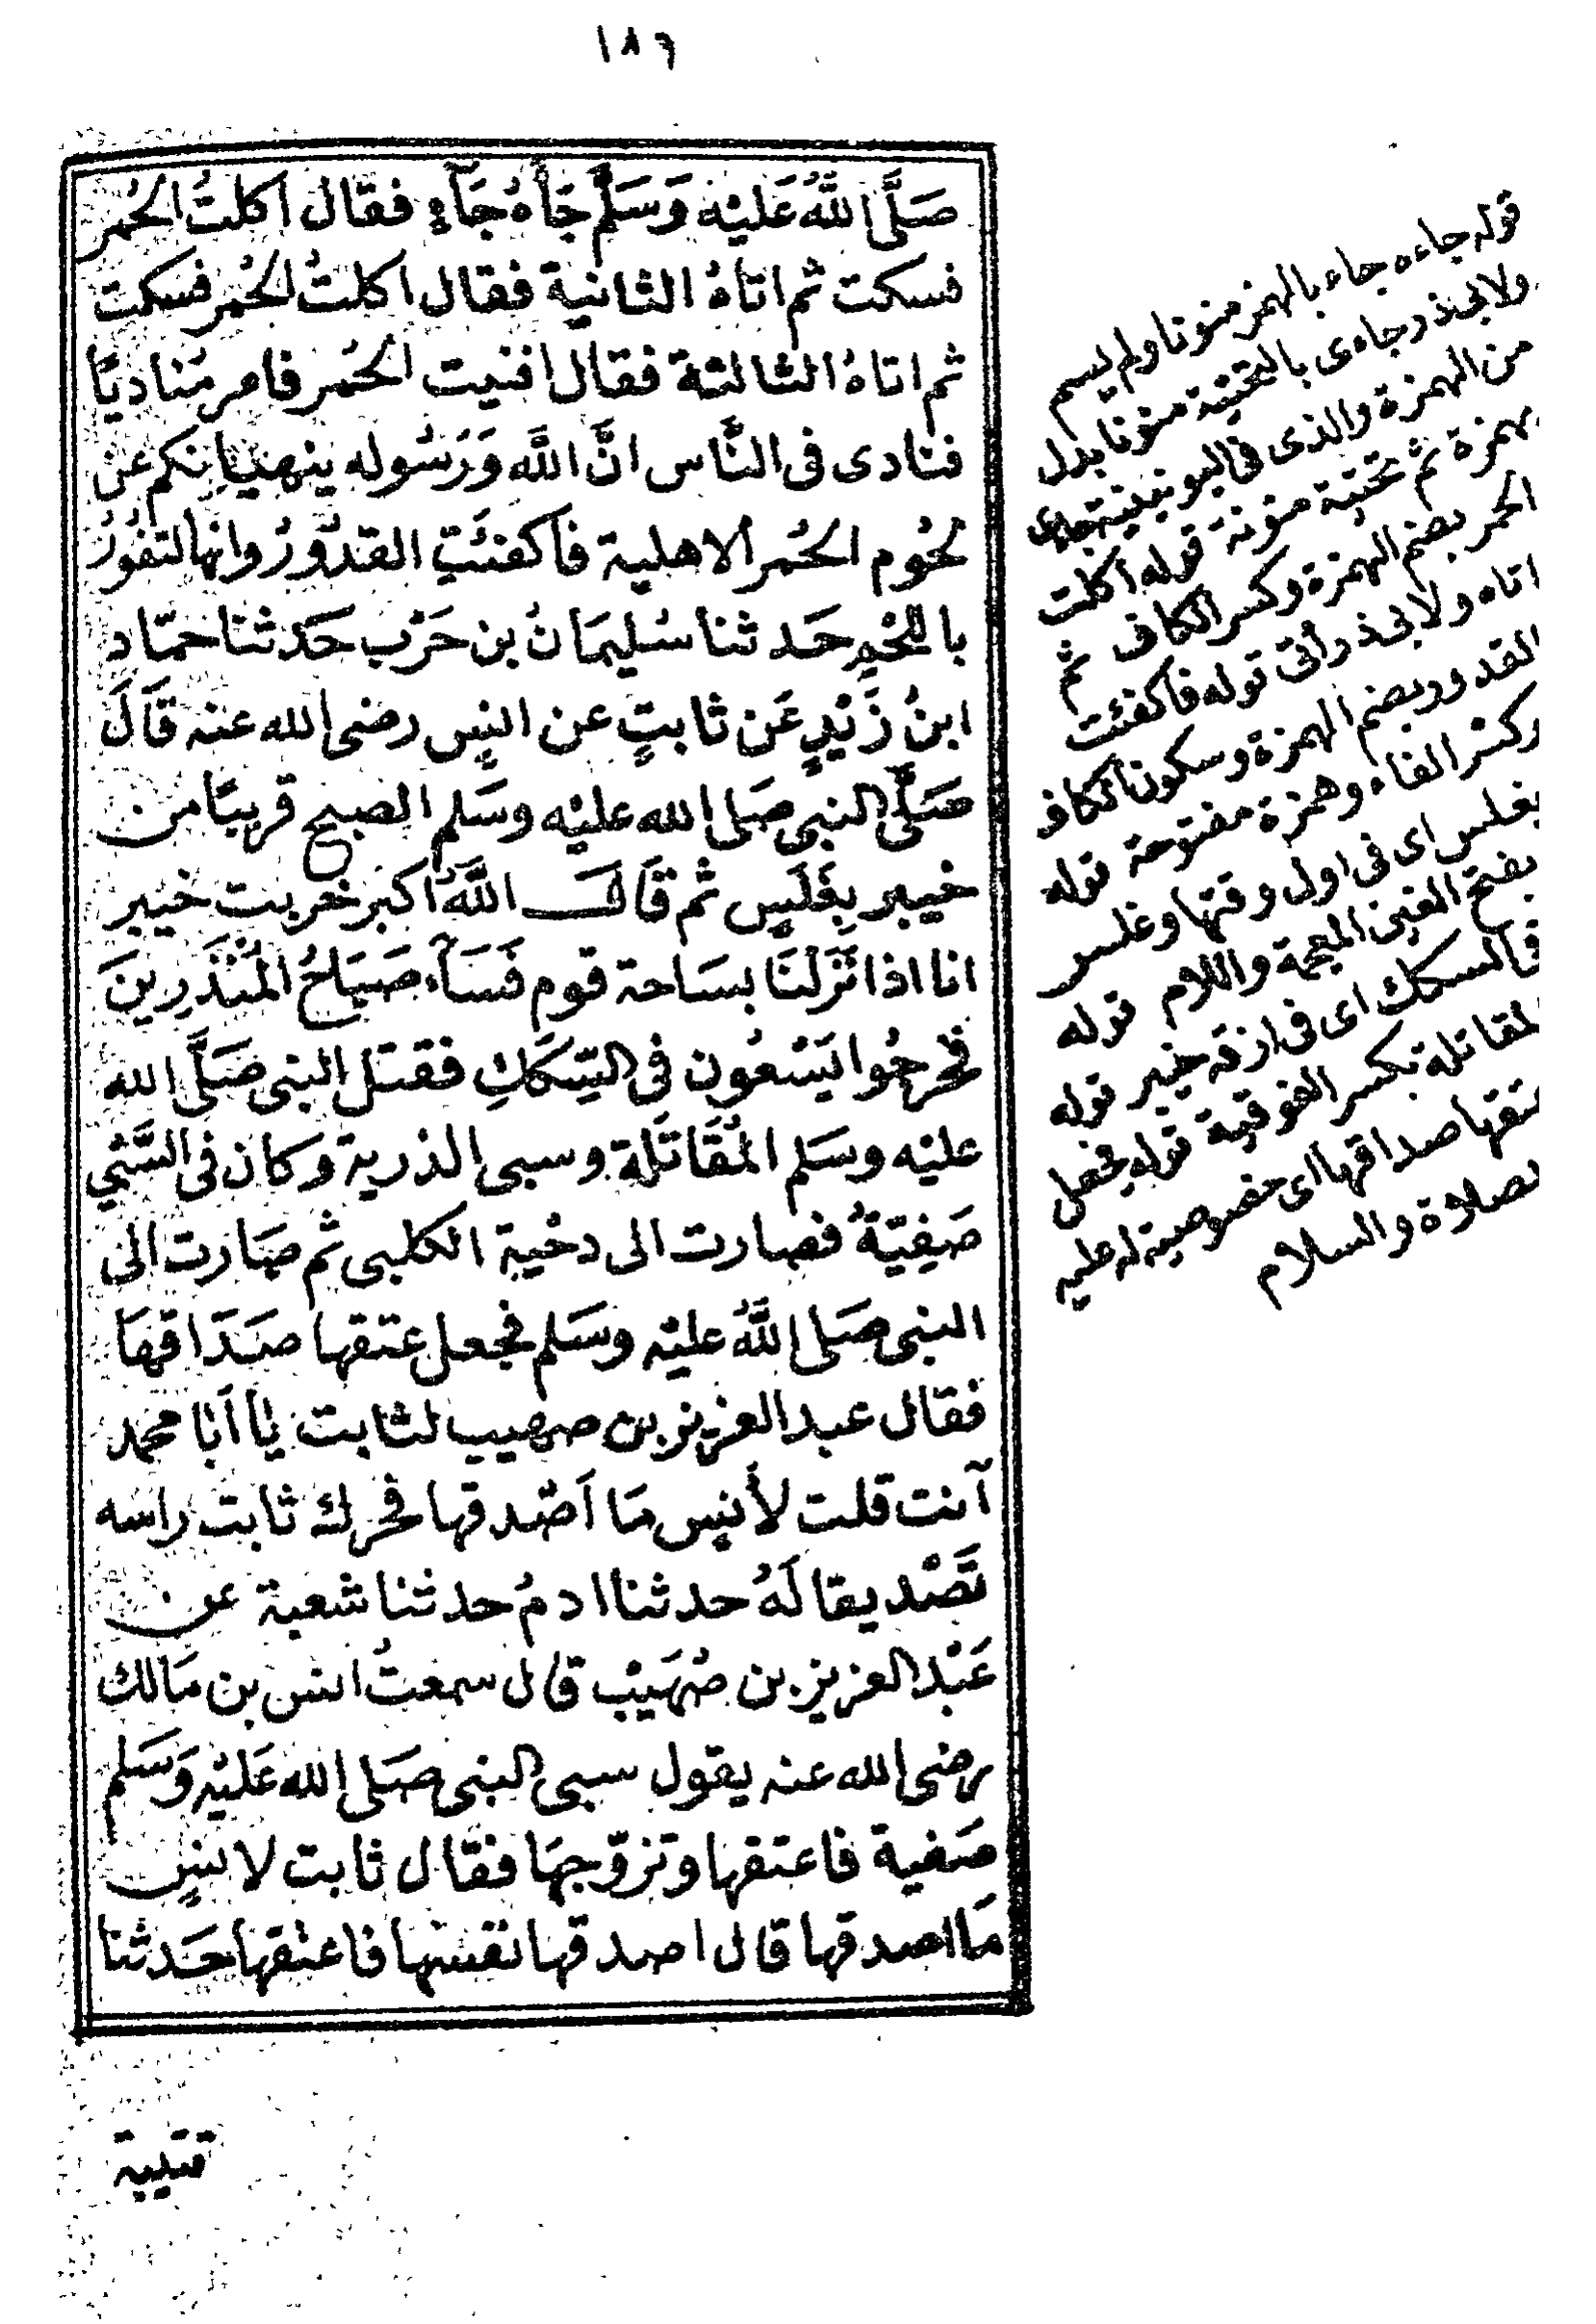 ١٨٦
صَلَّى اللَّهُ عَلَيْه وَسَلَّمَ جَآهُ جَآءٍ فقال اكلتُ الحُمر
فسكت ثم اتاهُ الثانية فقال اكلتُ الحُمر فسكت
ثم اتاهُ الثالثة فقال افنيت الحُمر فامر مُناديًا
فنادى فى النَّاس انَّ اللَّه وَرَسُوله ينهيانكم عن
لحُوم الحُمر الاهلية فاكفئَتِ القدُورُ وانها لتفُورُ
باللحْمِ حَدثنا سُليمَانُ بن حَرْب حَدثنا حمّاد
ابنُ زَيْدٍ عَن ثابتٍ عن انسٍ رضى الله عنه قَالَ
صَلَّى النبى صَلى الله عليْه وسَلم الصبح قريبًا من
خيبر بِغَلَسٍ ثم قَالَ اللَّهُ اكبر خربت خيبر
انا اذا نَزَلْنَا بسَاحة قوم فَسَآء صَبَاحُ المُنْذَرِينَ
فخرجُوا يَسْعُون فى السِّكَكِ فقتل النبى صَلَّى الله
عليْه وسَلم المُقَاتَلة وسبى الذرية وكان فى السَّبْي
صَفِيّةُ فصارت الى دحْية الكلبى ثم صَارت الى
النبى صَلى اللَّهُ عليْه وسَلم فجعل عتقها صَدَاقهَا
فقال عبد العزيز بن صهيب لثابت يا أبَا محمد
آنت قلت لأنسٍ مَا اَصْدقها فحرك ثابت راسه
تَصْديقا لَهُ حدثنا ادمُ حدثنا شعبة عن
عَبْد العزيز بن صُهَيْب قال سمعتُ انس بن مَالك
رضى الله عنه يقول سبى النبى صَلى الله عَليْه وَسَلم
صَفية فاعتقها وتزوّجهَا فقَال ثابت لانسٍ
مَا اصدقها قال اصدقها نفسَها فاعتقها حَدثنا
قتيبة
قوله جاءه جاء بالهمز منونا ولم يسم
ولابى ذر جاءى بالتحتية منونا بدل
من الهمزة والذى فى اليونينية جاءى
بهمزة ثم تحتية منونة قوله اكلت
الحمر بضم الهمزة وكسر الكاف ثم
اتاه ولابى ذر أتى قوله فاكفئت
القدور بضم الهمزة وسكون الكاف
وكسر الفاء وهمزة مفتوحة قوله
بغلس اى فى اول وقتها وغلس
بفتح الغين المعجمة واللام قوله
فى السكك اى فى ازقة خيبر قوله
المقاتلة بكسر الفوقية قوله فجعل
عتقها صداقها اى خصوصية له عليه
الصلاة والسلام